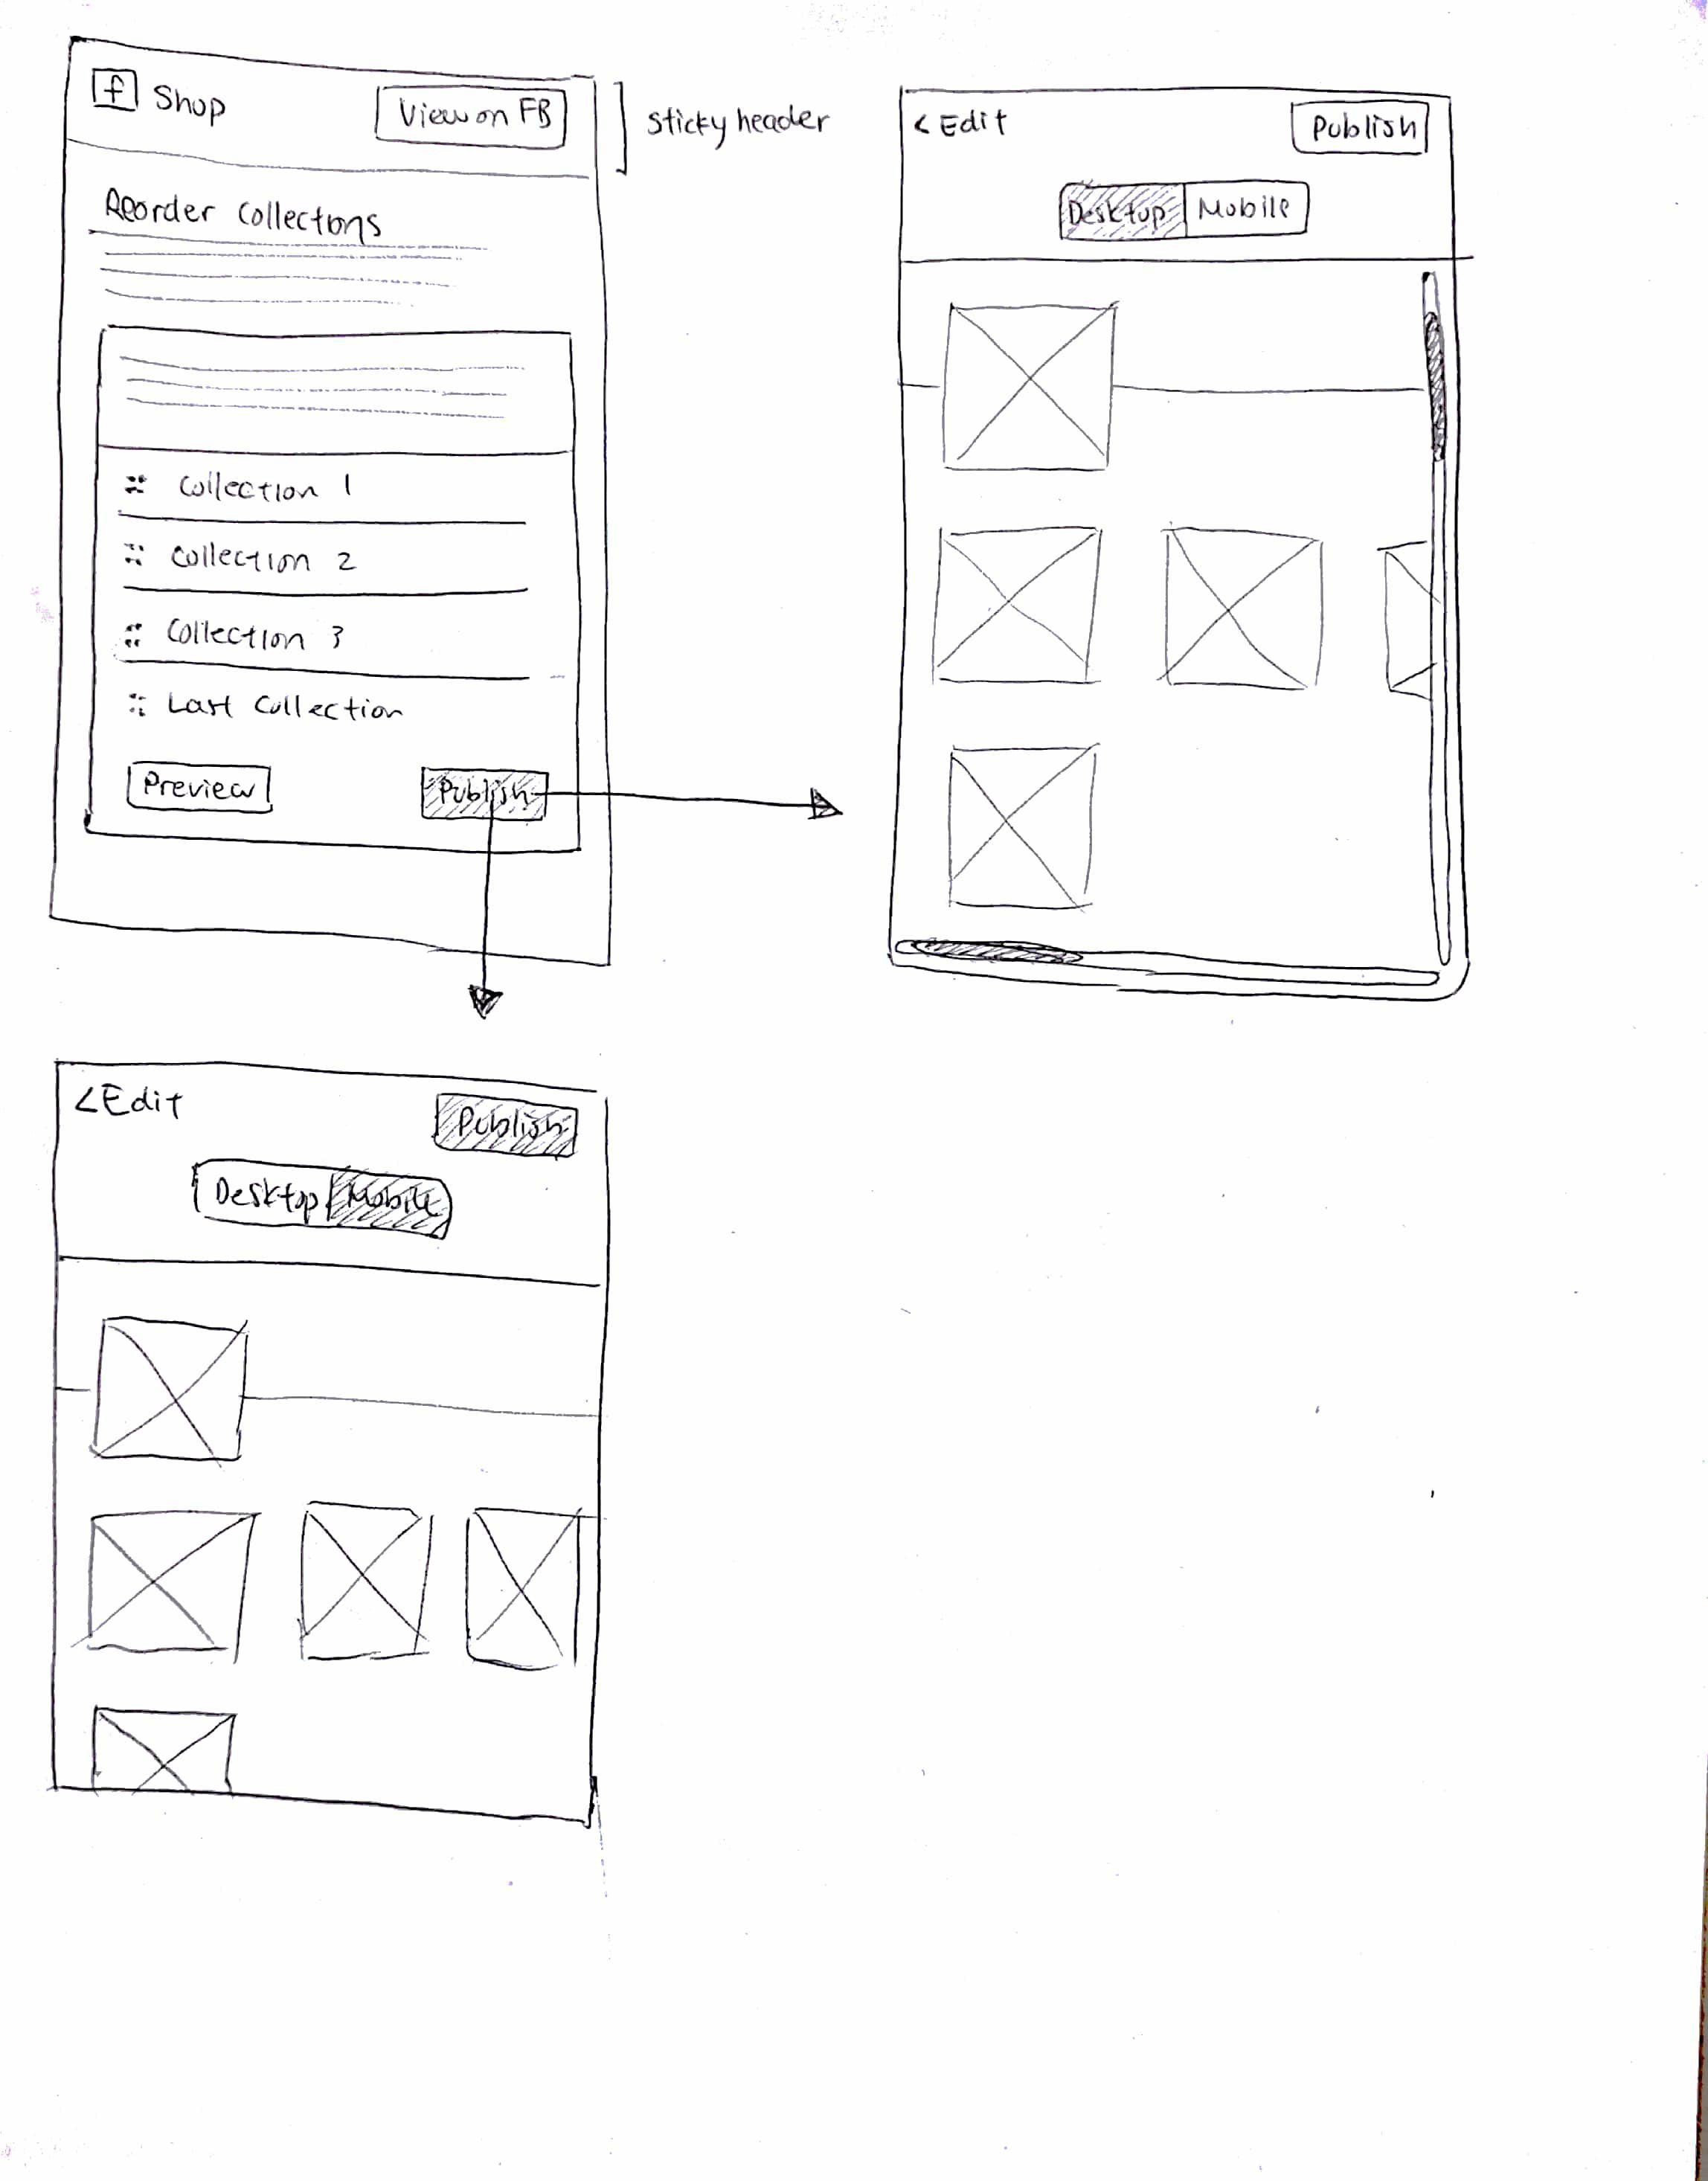 f Shop
View on FB
Sticky header
Reorder Collectons
Collection 1
Collection 2
Collection 3
Last Collection
Preview
Publish
< Edit
Publish
Desktop
Mobile
< Edit
Publish
Desktop
Mobile